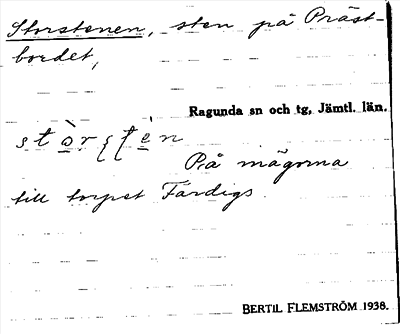 Storstenen, sten på Präst-
bordet,
Ragunda sn och tg, Jämtl. län.
På mågorna
till torpet Färdigs.
BERTIL FLEMSTRÖM 1938.